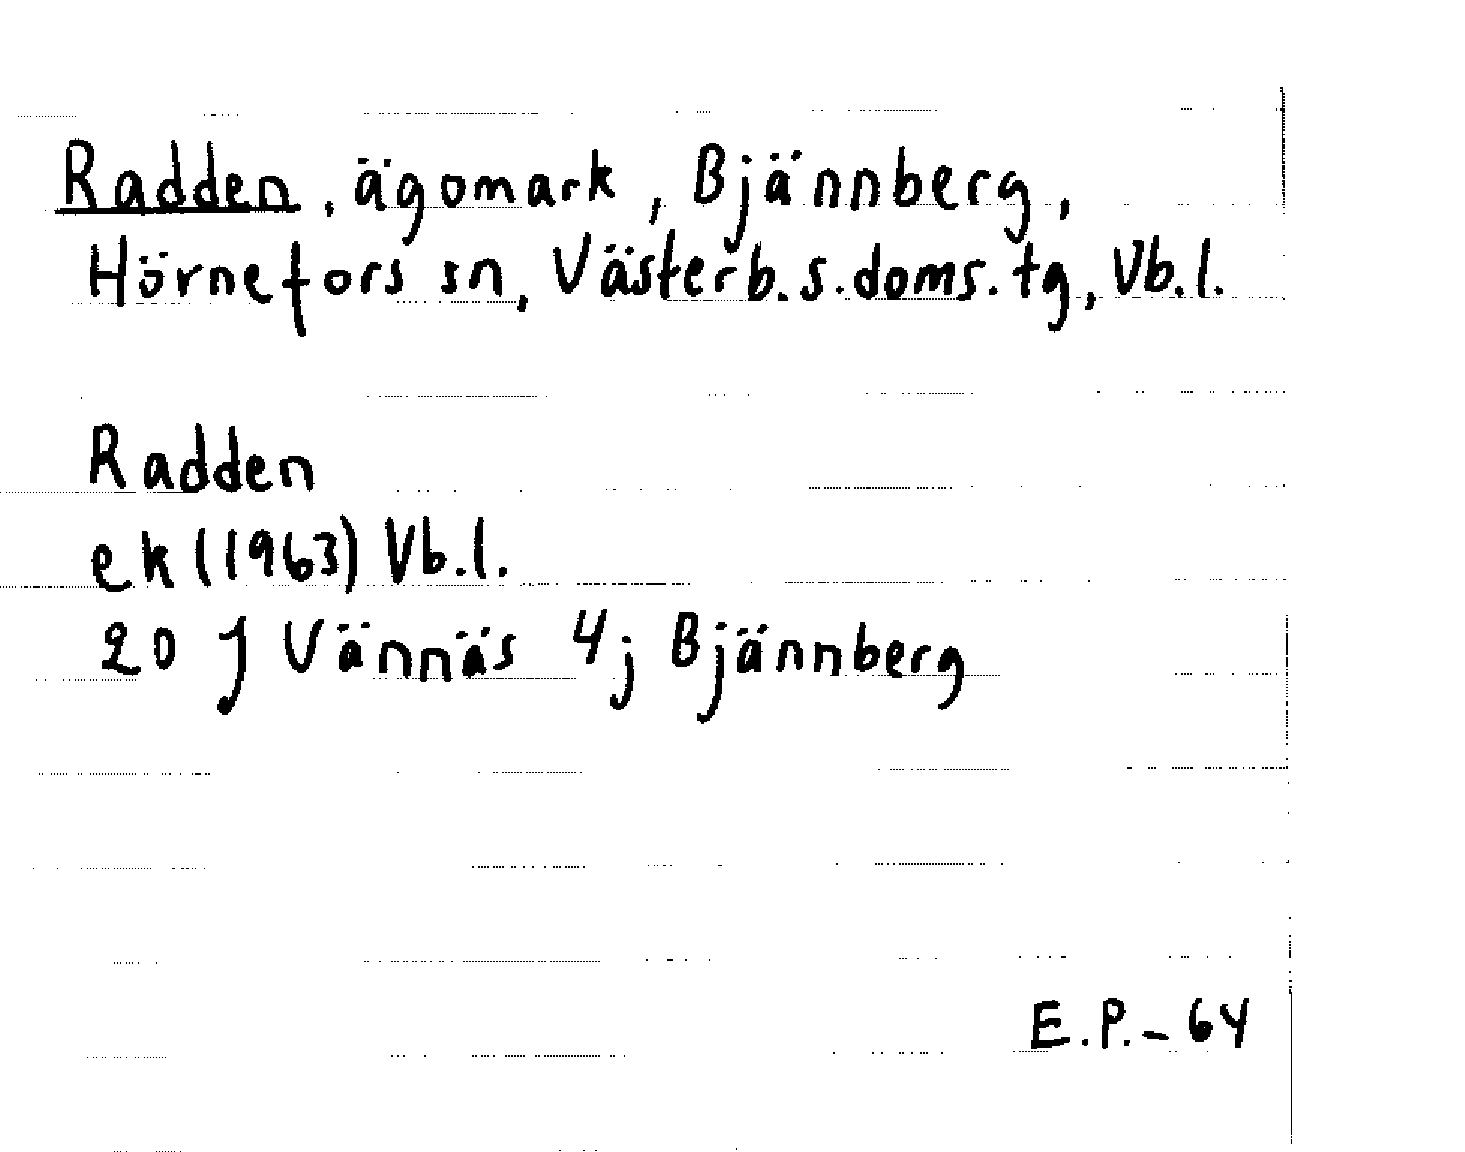 Radden, ägomark, Bjännberg,
Hörnefors sn, Västerb.s.doms.tg, Vb.l.
Radden
ek (1963) Vb.l.
20 J Vännäs 4j Bjännberg
E.P. - 64